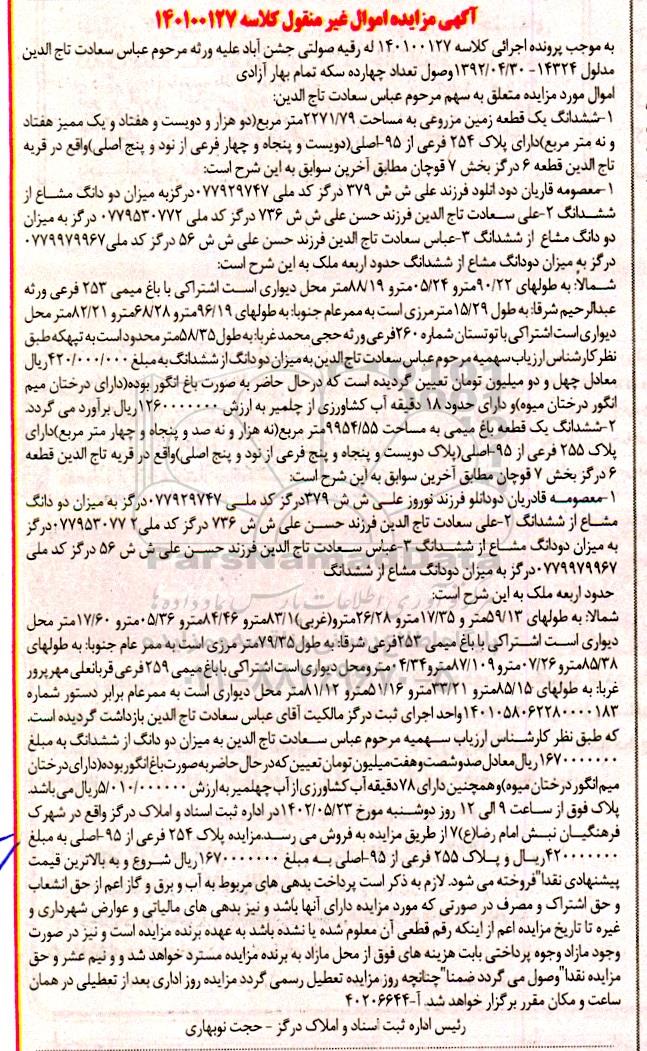 آگهی مزایده اموال غیر منقول کلاسه ۱۴۰۱۰۰۱۲۷
به موجب پرونده اجرائی کلاسه ۱۴۰۱۰۰۱۲۷ له رقیه صولتی جشن آباد علیه ورثه مرحوم عباس سعادت تاج الدین
مدلول ۱۴۳۲۴- ۱۳۹۲/۰۴/۳۰وصول تعداد چهارده سکه تمام بهار آزادی
اموال مورد مزایده متعلق به سهم مرحوم عباس سعادت تاج الدین:
۱-ششدانگ یک قطعه زمین مزروعی به مساحت ۲۲۷۱/۷۹متر مربع(دو هزار و دویست و هفتاد و یک ممیز هفتاد
و نه متر مربع)دارای پلاک ۲۵۴ فرعی از ۹۵-اصلی(دویست و پنجاه و چهار فرعی از نود و پنج اصلی)واقع در قریه
تاج الدین قطعه ۶ درگز بخش ۷ قوچان مطابق آخرین سوابق به این شرح است:
۱-معصومه قاریان دود انلود فرزند علی ش ش ۳۷۹ درگز کد ملی ۰۷۷۹۲۹۷۴۷درگزبه میزان دو دانگ مشاع از
ششدانگ ۲-علی سعادت تاج الدین فرزند حسن علی ش ش ۷۳۶ درگز کد ملی ۰۷۷۹۵۳۰۷۷۲ درگز به میزان
دو دانگ مشاع از ششدانگ ۳-عباس سعادت تاج الدین فرزند حسن علی ش ش ۵۶ درگز کد ملی۰۷۷۹۹۷۹۹۶۷
درگز به میزان دودانگ مشاع از ششدانگ حدود اربعه ملک به این شرح است:
شمالا: به طولهای ۹۰/۲۲مترو ۰۵/۲۴مترو ۸۸/۱۹متر محل دیواری است اشتراکی با باغ میمی ۲۵۳ فرعی ورثه
عبدالرحیم شرقا: به طول ۱۵/۲۹مترمرزی است به ممرعام جنوبا: به طولهای ۹۶/۱۹مترو ۶۸/۲۸مترو ۸۲/۲۱متر محل
دیواری است اشتراکی با توتستان شماره ۲۶۰فرعی ورثه حجی محمد غربا: به طول ۵۸/۳۵متر محدود است به تپهکه طبق
نظر کارشناس ارزیاب سهمیه مرحوم عباس سعادت تاج الدین به میزان دو دانگ از ششدانگ به مبلغ ۴۲۰/۰۰۰/۰۰۰ریال
معادل چهل و دو میلیون تومان تعیین گردیده است که درحال حاضر به صورت باغ انگور بوده(دارای درختان میم
انگور درختان میوه)و دارای حدود ۱۸ دقیقه آب کشاورزی از چلمیر به ارزش ۱۲۶۰۰۰۰۰۰۰ریال برآورد می گردد.
۲-ششدانگ یک قطعه باغ میمی به مساحت ۹۹۵۴/۵۵متر مربع(نه هزار و نه صد و پنجاه و چهار متر مربع)دارای
پلاک ۲۵۵ فرعی از ۹۵-اصلی(پلاک دویست و پنجاه و پنج فرعی از نود و پنج اصلی)واقع در قریه تاج الدین قطعه
۶ درگز بخش ۷ قوچان مطابق آخرین سوابق به این شرح است:
۱-معصومه قادریان دودانلو فرزند نوروز علی ش ش ۳۷۹درگز کد ملی ۰۷۷۹۲۹۷۴۷درگز به میزان دو دانگ
مشاع از ششدانگ ۲-علی سعادت تاج الدین فرزند حسن علی ش ش ۷۳۶ درگز کد ملی۲ ۰۷۷۹۵۳۰۷۷درگز
به میزان دودانگ مشاع از ششدانگ ۳-عباس سعادت تاج الدین فرزند حسن علی ش ش ۵۶ درگز کد ملی
۰۷۷۹۹۷۹۹۶۷درگز به میزان دودانگ مشاع از ششدانگ
حدود اربعه ملک به این شرح است:
شمالا: به طولهای ۵۹/۱۳متر و ۱۷/۳۵مترو ۲۶/۲۸مترو(غربی)۸۳/۱مترو ۸۴/۴۶مترو ۰۵/۳۶مترو ۱۷/۶۰متر محل
دیواری است اشتراکی با باغ میمی ۲۵۳فرعی شرقا: به طول ۷۹/۳۵متر مرزی است به ممر عام جنوبا: به طولهای
۸۵/۳۸مترو ۰۷/۲۶مترو ۸۷/۱۰۹مترو ۰۴/۳۴متر و محل دیواری است اشتراکی با باغ میمی ۲۵۹ فرعی قربانعلی مهر پرور
غربا: به طولهای ۸۵/۱۵مترو ۳۳/۲۱مترو ۵۱/۱۶مترو ۸۱/۱۲متر محل دیواری است به ممرعام برابر دستور شماره
۱۴۰۱۰۵۸۰۶۲۲۸۰۰۰۰۱۸۳واحد اجرای ثبت درگز مالکیت آقای عباس سعادت تاج الدین بازداشت گردیده است.
که طبق نظر کارشناس ارزیاب سهمیه مرحوم عباس سعادت تاج الدین به میزان دو دانگ از ششدانگ به مبلغ
۱۶۷۰۰۰۰۰۰۰ریال معادل صدو شصت و هفت میلیون تومان تعیین که درحال حاضر به صورت باغ انگور بوده(دارای درختان
میم انگور درختان میوه)و همچنین دارای ۷۸دقیقه آب کشاورزی از آب چهلمیر به ارزش ۵/۰۱۰/۰۰۰۰۰۰ریال می باشد.
پلاک فوق از ساعت ۹ الی ۱۲ روز دوشنبه مورخ ۱۴۰۲/۰۵/۲۳در اداره ثبت اسناد و املاک درگز واقع در شهرک
فرهنگیان نبش امام رضا(ع)۷ از طریق مزایده به فروش می رسد.مزایده پلاک ۲۵۴ فرعی از ۹۵-اصلی به مبلغ
۴۲۰۰۰۰۰۰۰ریال و پلاک ۲۵۵ فرعی از ۹۵-اصلی به مبلغ ۱۶۷۰۰۰۰۰۰۰ریال شروع و به بالاترین قیمت
پیشنهادی نقدا"فروخته می شود. لازم به ذکر است پرداخت بدهی های مربوط به آب و برق و گاز اعم از حق انشعاب
و حق اشتراک و مصرف در صورتی که مورد مزایده دارای آنها باشد و نیز بدهی های مالیاتی و عوارض شهرداری و
غیره تا تاریخ مزایده اعم از اینکه رقم قطعی آن معلوم شده یا نشده باشد به عهده برنده مزایده است و نیز در صورت
وجود مازاد وجوه پرداختی بابت هزینه های فوق از محل مازاد به برنده مزایده مسترد خواهد شد و و نیم عشر و حق
مزایده نقدا"وصول می گردد ضمنا"چنانچه روز مزایده تعطیل رسمی گردد مزایده روز اداری بعد از تعطیلی در همان
ساعت و مکان مقرر برگزار خواهد شد. آ-۴۰۲۰۶۶۴۴
رئیس اداره ثبت اسناد و املاک درگز - حجت نوبهاری